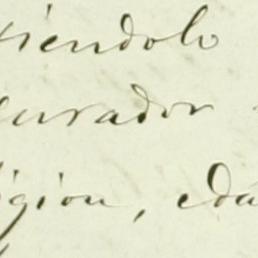 siendolo
curador
igion, eda